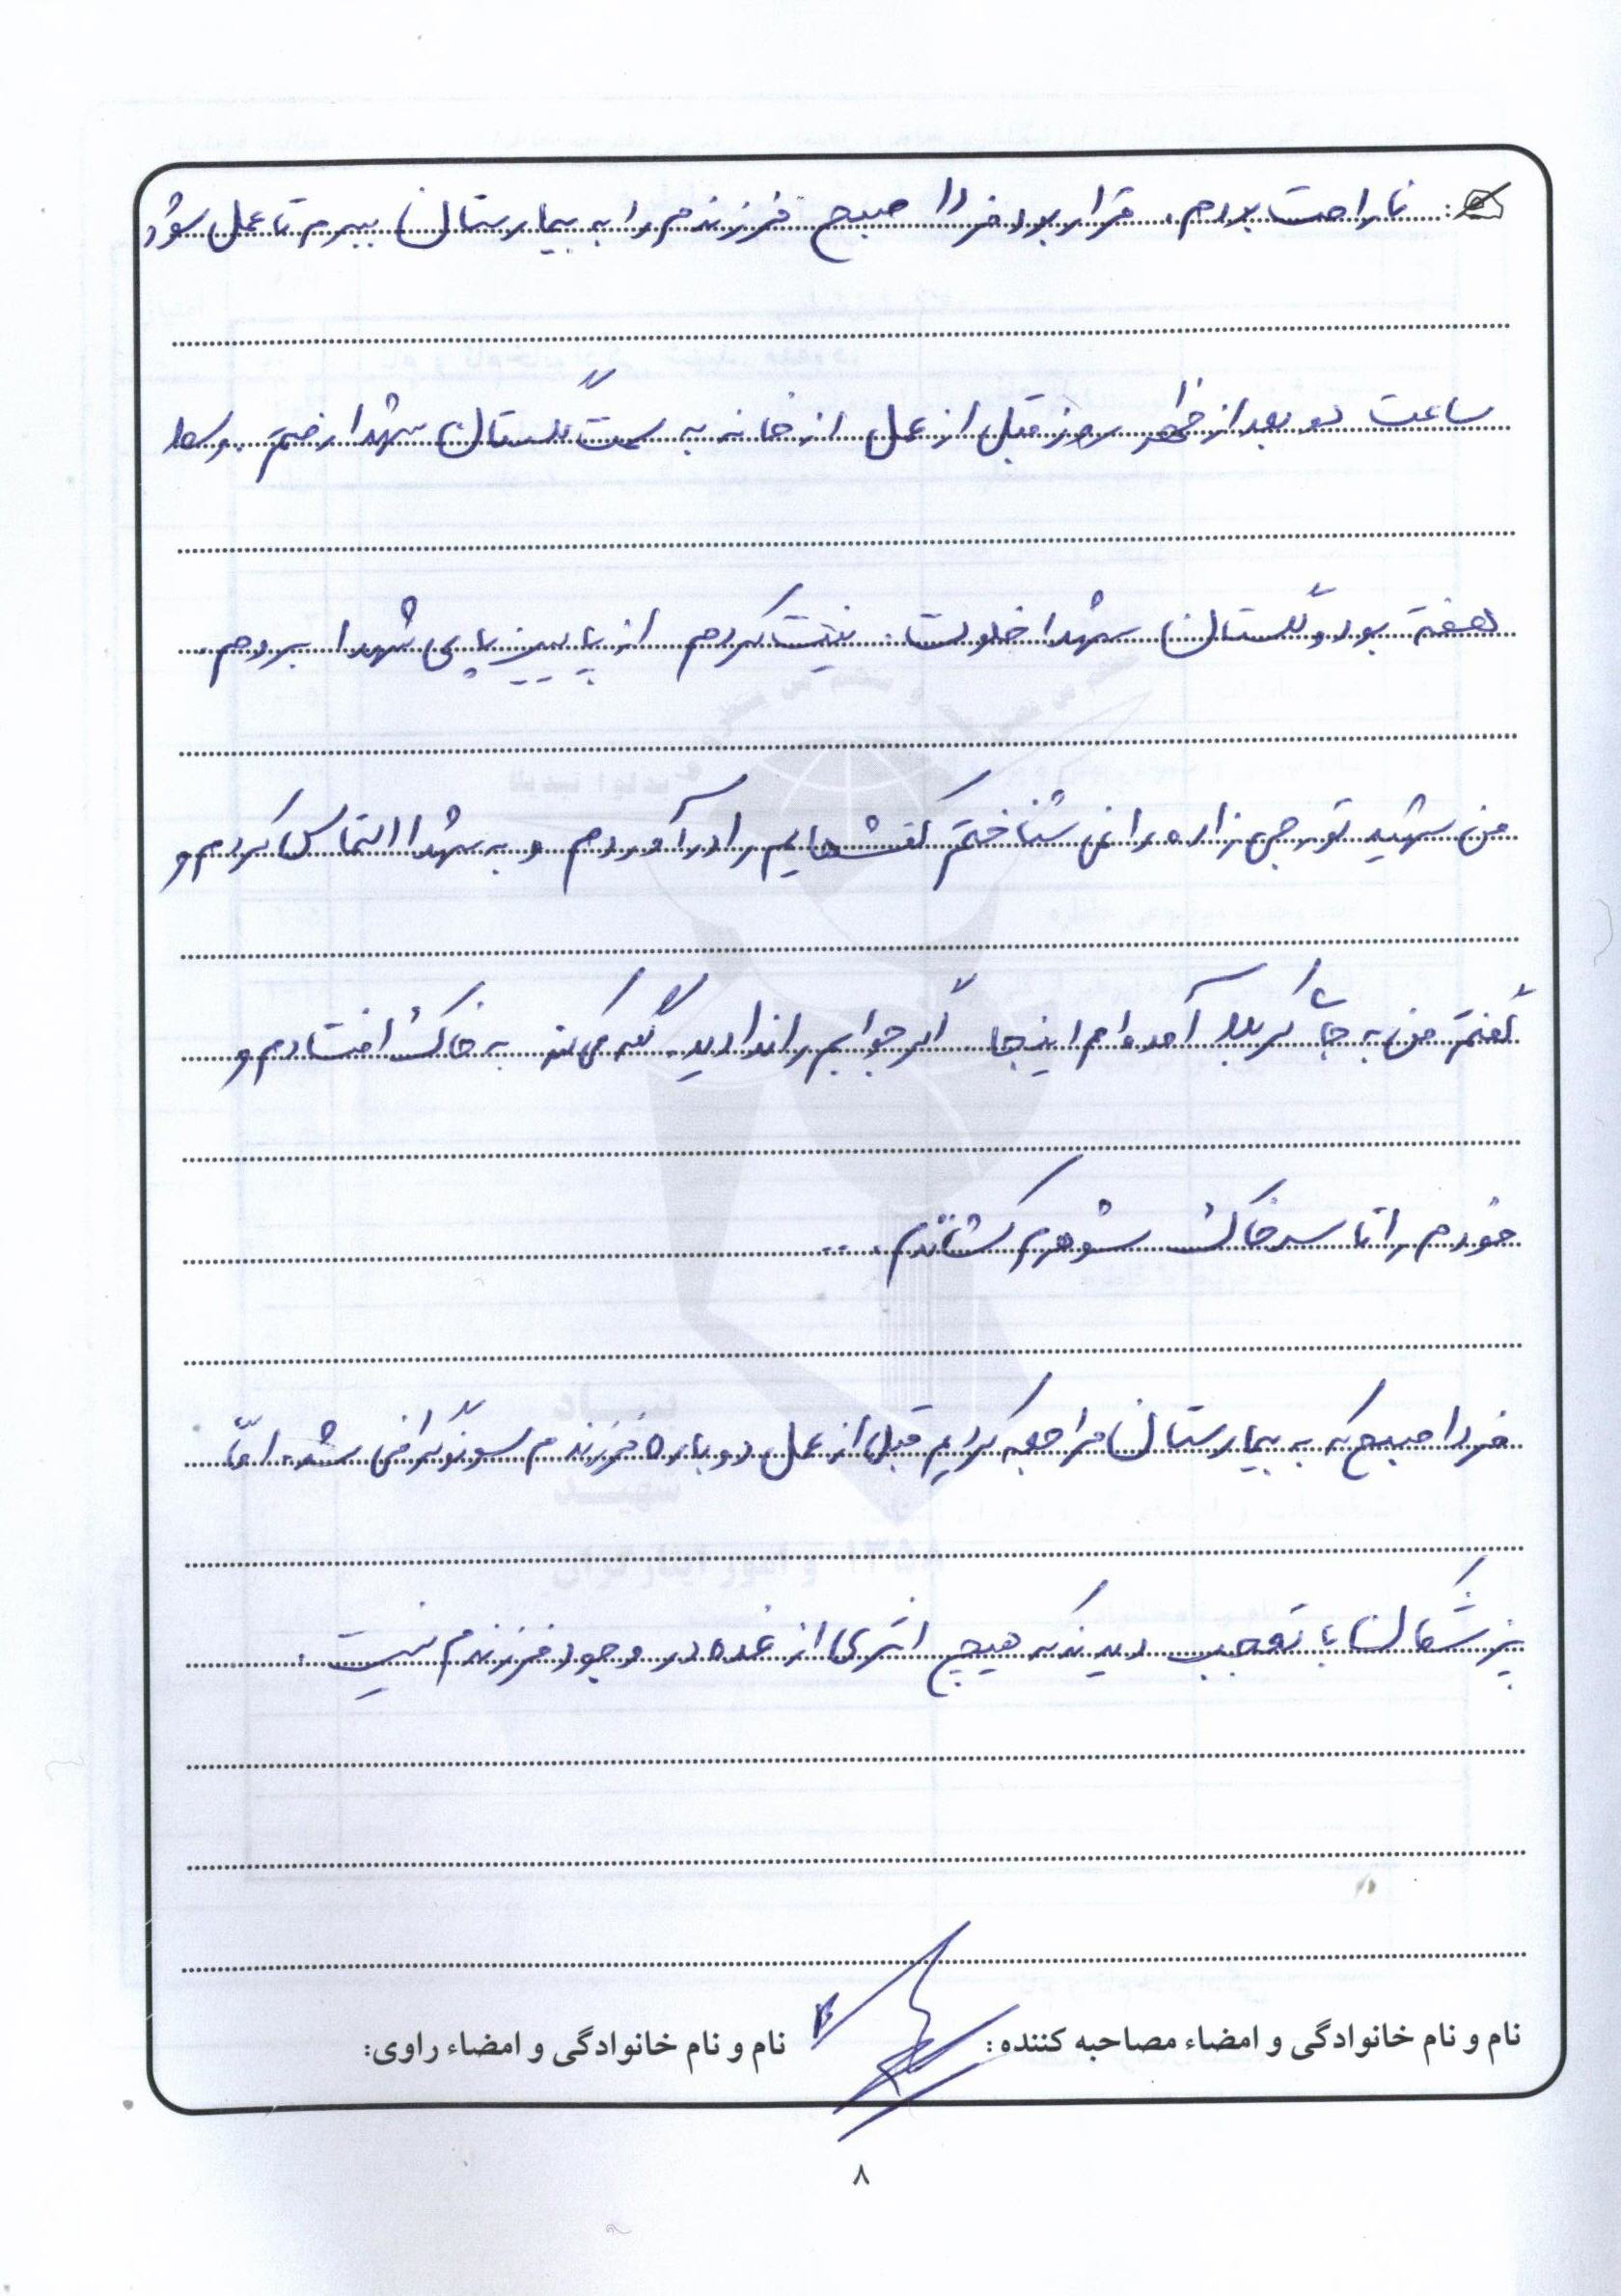 ناراحت بودم. قرار بود فردا صبح فرزندم را به بیمارستان ببرم تا عمل شود
ساعت دو بعد از ظهر روز قبل از عمل از خانه به سمت گلستان شهدا رفتم. وسط
هفته بود و گلستان شهدا خلوت. نیت کردم از پایین پای شهدا بروم.
من شهید تورجی زاده را نمی شناختم کفشهایم را درآوردم و به شهدا التماس کردم و
گفتم من به جای کربلا آمده ام اینجا. اگر جوابم را ندادید، گله می کنم به خاک افتادم و
خودم را تا سر خاک شوهرم کشاندم...
فردا صبح که به بیمارستان مراجعه کردیم قبل از عمل دوباره فرزندم سونوگرافی شد. امّا
پزشکان با تعجب دیدند که هیچ اثری از غده در وجود فرزندم نیست.
نام و نام خانوادگی و امضاء مصاحبه کننده: نام و نام خانوادگی و امضاء راوی:
۸